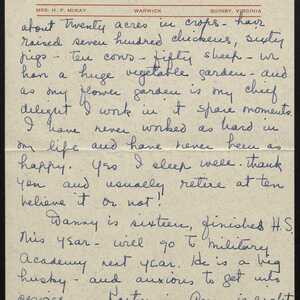 MRS. H. P. MCKAY WARWICK QUINBY, VIRGINIA
about twenty acres in crops - have
raised seven hundred chickens, sixty
pigs - ten cows - fifty sheep - we
have a huge vegetable garden - and
as my flower garden is my chief
delight I work in it spare moments.
I have never worked as hard in
my life and have never been as
happy. Yes I sleep well - thank
you and usually retire at ten
believe it or not!
Danny is sixteen, finished H.S.
this year - will go to military
Academy next year. He is a big
husky - and anxious to get into